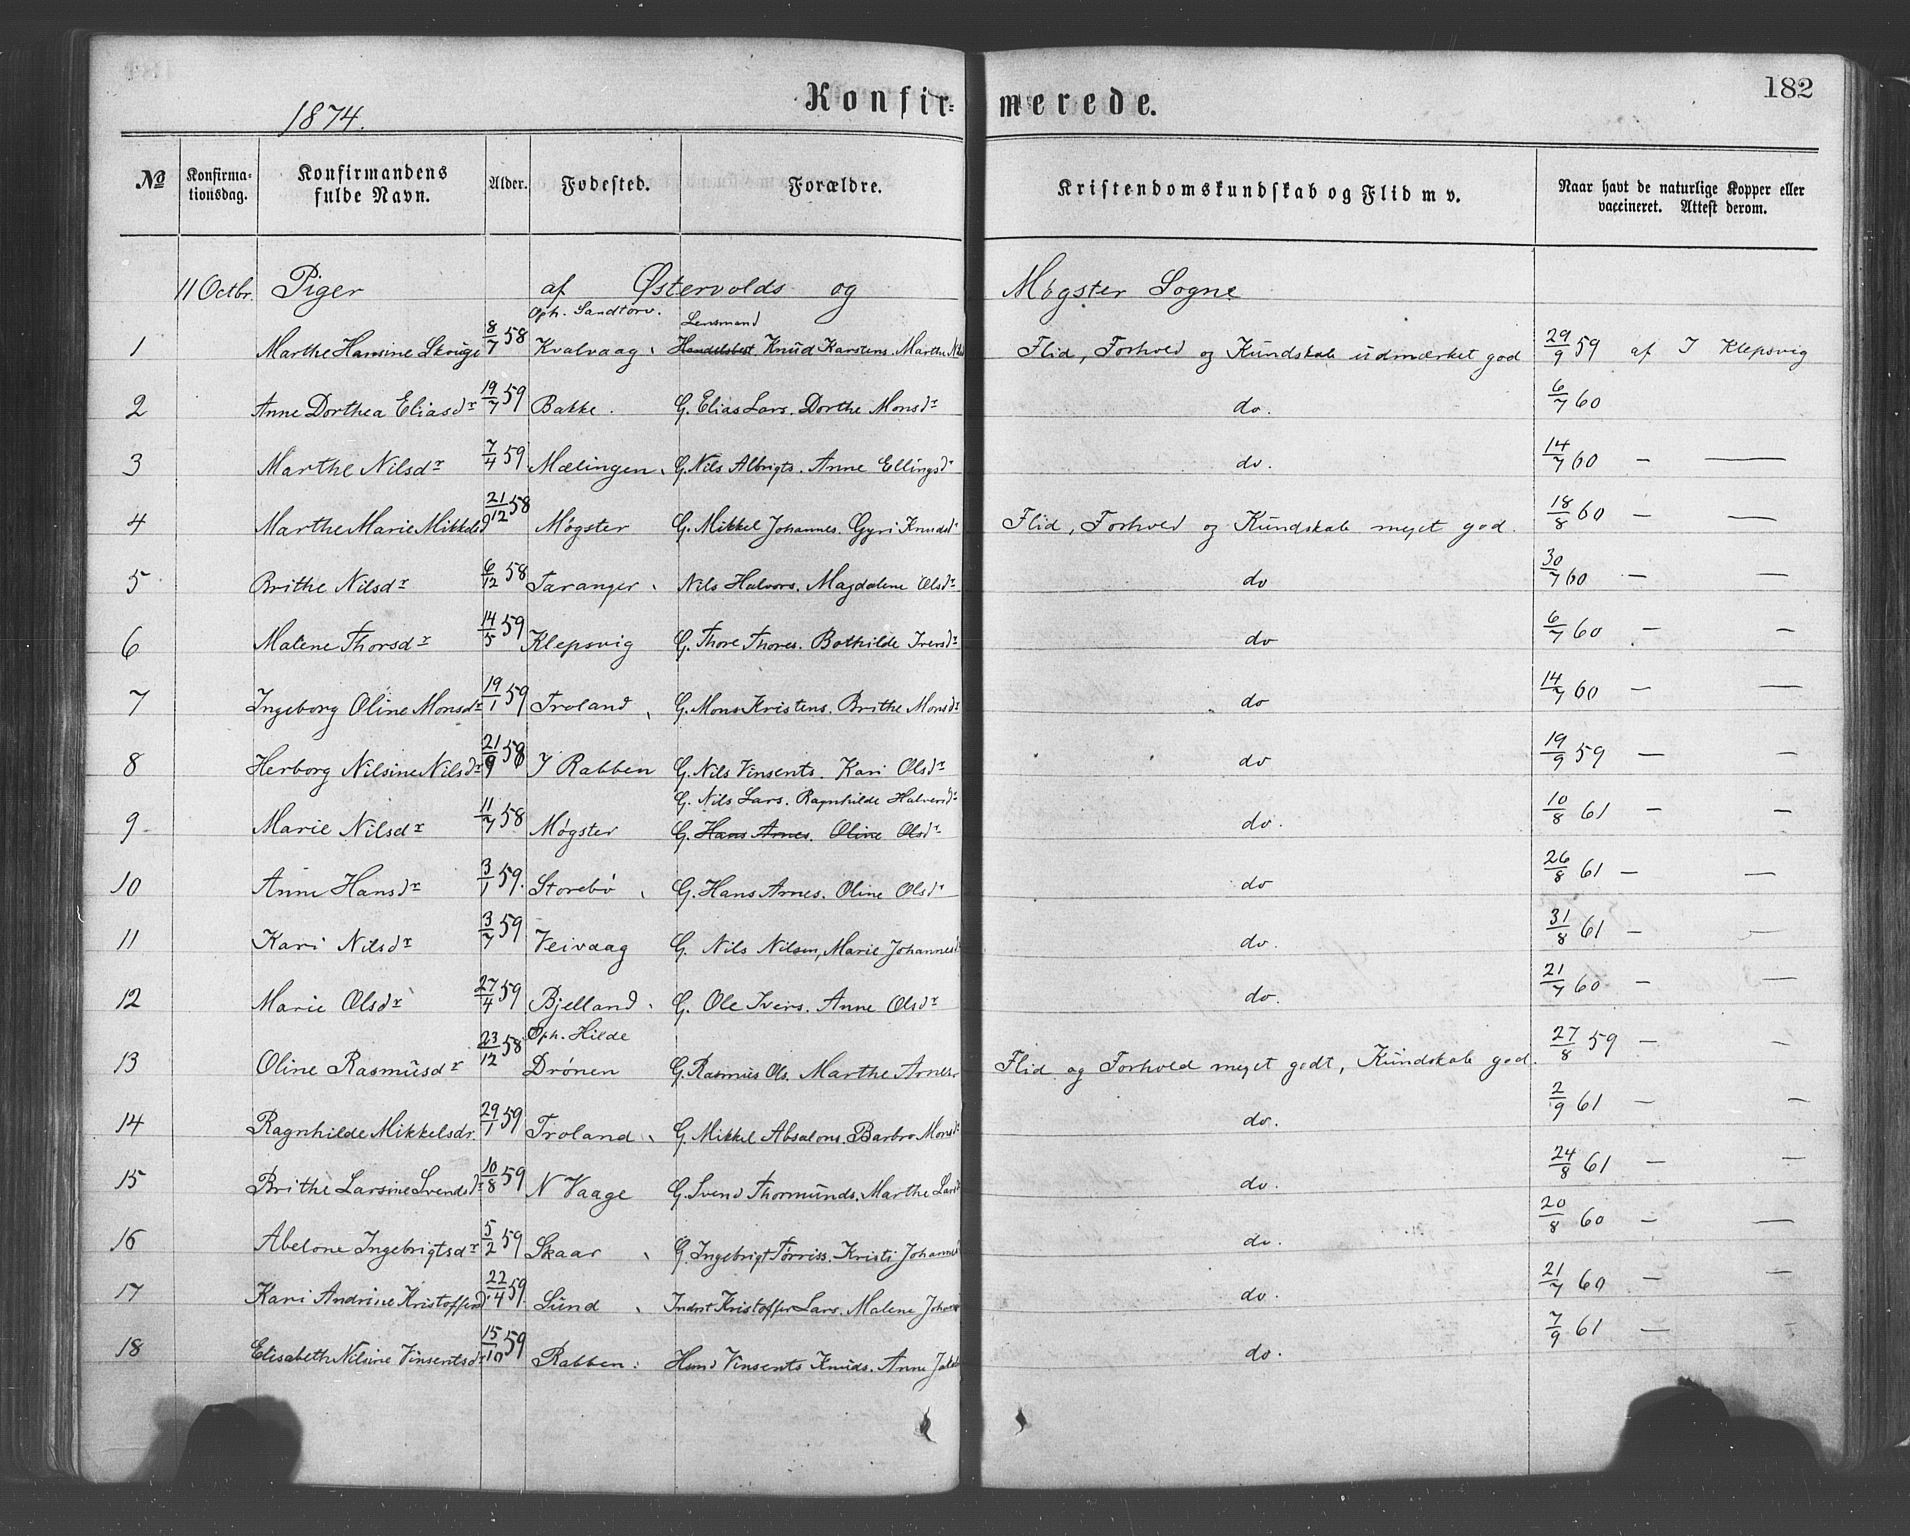 182
Konfir- merede.
1874.
№ Konfirma-tionsdag. Konfirmandens fulde Navn. Alder. Fødested. Forældre. Kristendomskundskab og Flid m v. Naar havt de naturlige Kopper eller vaccineret. Attest derom.
11 Octbr. Piger af Østervolds og Møgster Sogne
Oph. Sandtorv. Lensmand
1 Marthe Hansine 8/7 58 Kvalvaag Handelsbest Knud Karstens. Marthe Flid, Forhold og Kundskab udmærket god 29/9 59 af J Klepsvig
2 Anne Dorthea Eliasdr 19/7 59 Bakke. G. Elias Lars. Dorthe Monsdr do. 6/7 60
3 Marthe Nilsdr 7/4 59 Mælingen G. Nils Albrigts. Anne Ellingsdr do. 14/7 60 — —
4 Marthe Marie Mikkelsd 21/12 58 Møgster G. Mikkel Johannes. Gyri Knudsdr Flid, Forhold og Kundskab meget god. 18/8 60 — —
5 Brithe Nilsdr 6/12 58 Taranger Nils Halvors. Magdalene Olsdr do 30/7 60 — —
6 Malene Thorsdr 14/5 59 Klepsvig G. Thore Thores. Bothilde Iversdr do 6/7 60 — —
7 Ingeborg Oline Monsdr 19/1 59 Troland G. Mons Kristens. Brithe Monsdr do 14/7 60 — —
8 Herborg Nilsine Nilsdr 21/9 58 I Rabben G. Nils Vinsents. Kari Olsdr do 19/9 59 — —
G. Nils Lars. Ragnhilde Halversdr
9 Marie Nilsdr 11/7 58 Møgster G. Hans Arnes. Oline Olsdr do. 10/8 61 — —
10 Anne Hansdr 3/1 59. Storebø G. Hans Arnes. Oline Olsdr do 26/8 61 — —
11 Kari Nilsdr 3/7 59 Veivaag G. Nils Nilsen, Marie Johannesd do. 31/8 61 — —
12 Marie Olsdr 27/4 59 Bjelland. G. Ole Ivers. Anne Olsdr do. 21/7 60 — —
Oph. Hilde
13 Oline Rasmusdr 23/12 58 Drønen G. Rasmus Ols. Marthe Arnesr Flid og Forhold meget godt, Kundskab god. 27/8 59 — —
14 Ragnhilde Mikkelsdr. 29/1 59 Troland G. Mikkel Absalons. Barbro Monsdr do. 2/9 61 — —
15 Brithe Larsine Svendsdr 10/8 59 N Vaage G. Svend Thormunds. Marthe Larsd do. 24/8 61 — —
16 Abelone Ingebrigtsdr 5/2 59 Skaar G. Ingebrigt Tørriss. Kristi Johannes do. 20/8 60 — —
17 Kari Andrine Kristoffersd 22/4 59. Sund Indrst Kristoffer Lars. Malene do. 21/7 60 — —
18 Elisabeth Nilsine Vinsentsdr 15/10 59 Rabben. Hmd Vinsents Knuds. Anne do. 7/9 61 — -